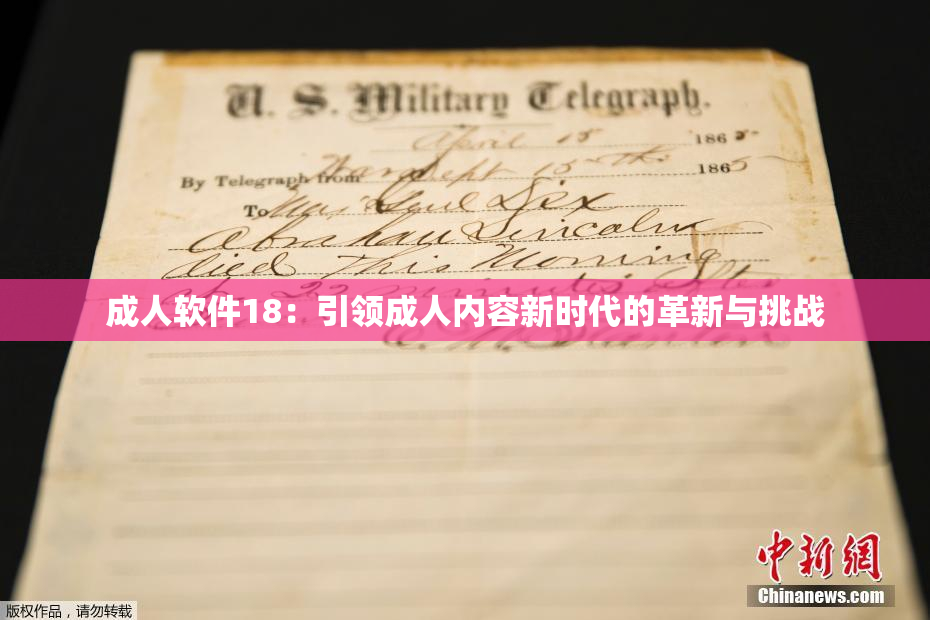 U. S. Military Telegraph.
April 15 1865.
By Telegraph from War Dept 15th 1865
To Maj Genl Dix
Abraham Lincoln
died This Morning
22 minutes after
成人软件18：引领成人内容新时代的革新与挑战
E. M. Stanton
中新网
Chinanews.com
版权作品，请勿转载